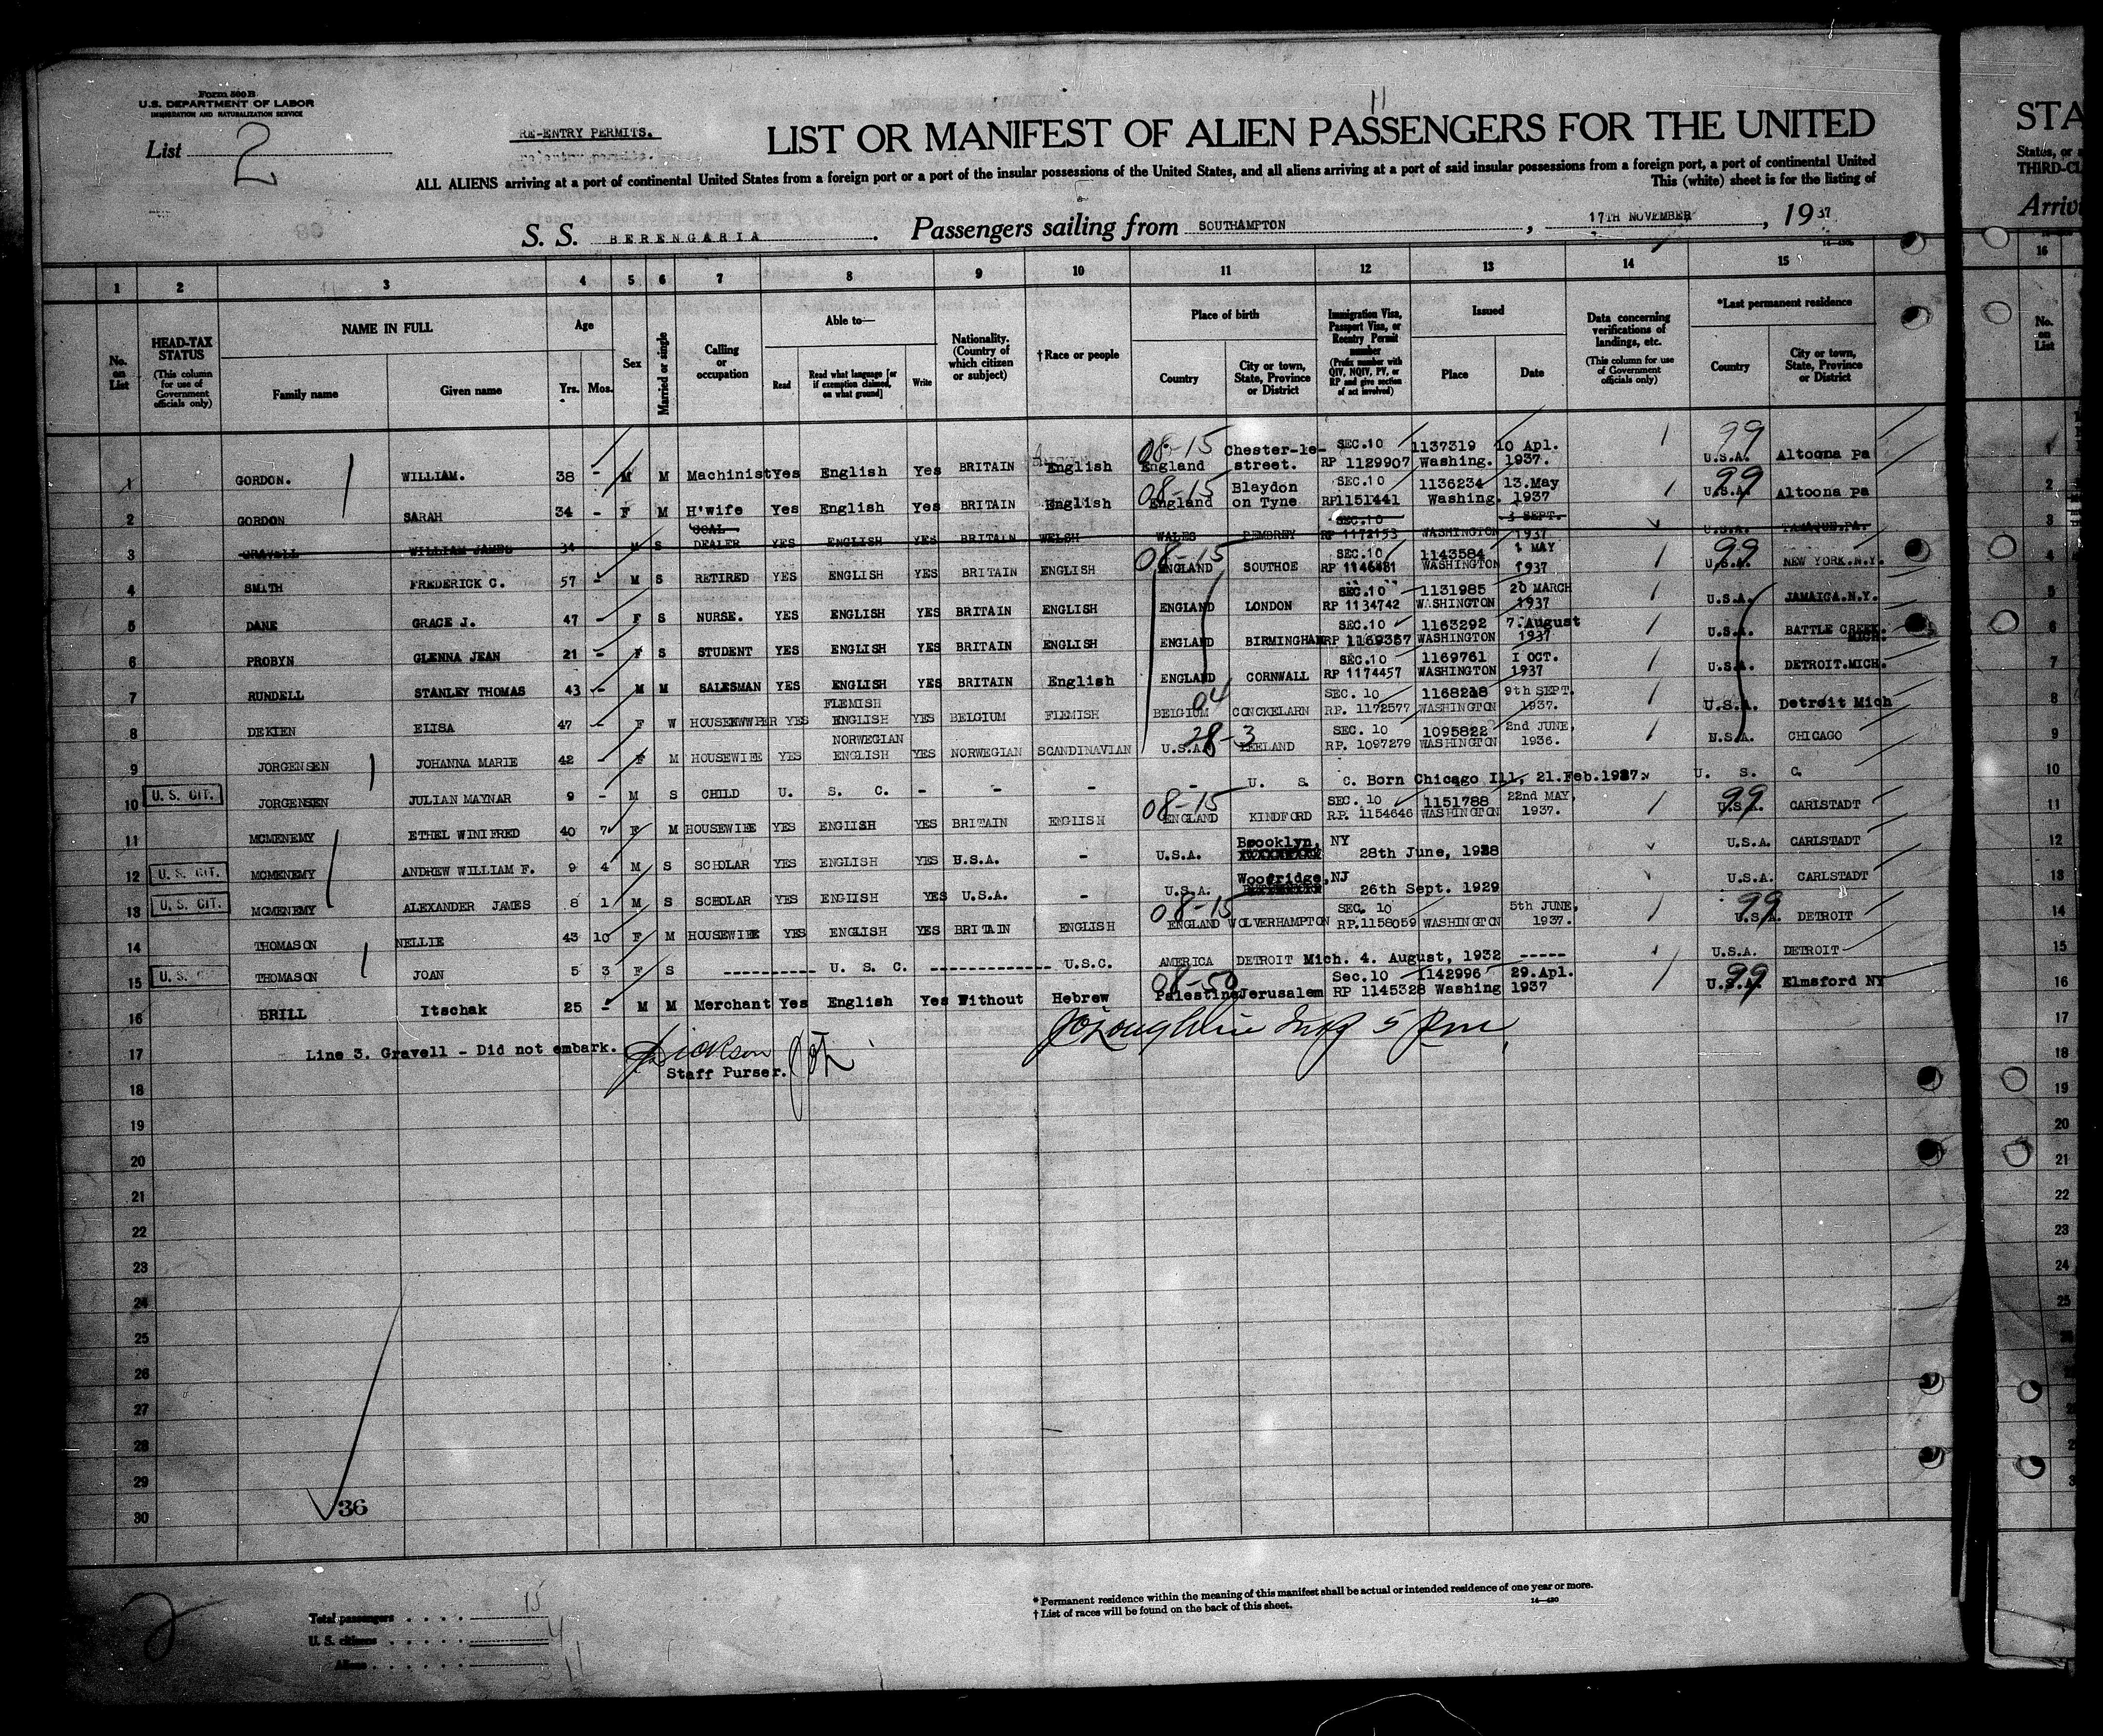 Form 500 B
U.S. DEPARTMENT OF LABOR
IMMIGRATION AND NATURALIZATION SERVICE
List 2
RE-ENTRY PERMITS.
11
LIST OR MANIFEST OF ALIEN PASSENGERS FOR THE UNITED
STA
ALL ALIENS arriving at a port of continental United States from a foreign port or a port of the insular possessions of the United States, and all aliens arriving at a port of said insular possessions from a foreign port, a port of continental United
States, or a
This (white) sheet is for the listing of
THIRD-CL
S. S. BERENGARIA. Passengers sailing from SOUTHAMPTON, 17TH NOVEMBER, 1937
Arriv
1 2 3 4 5 6 7 8 9 10 11 12 13 14 15 16
No. on List
HEAD-TAX STATUS (This column for use of Government officials only)
NAME IN FULL
Family name Given name
Age Yrs. Mos.
Sex
Married or single
Calling or occupation
Able to—
Read Read what language [or if exemption claimed, on what ground] Write
Nationality. (Country of which citizen or subject)
†Race or people
Place of birth
Country City or town, State, Province or District
Immigration Visa, Passport Visa, or Reentry Permit number (Prefix number with QIV, NQIV, PV, or RP and give section of act involved)
Issued
Place Date
Data concerning verifications of landings, etc. (This column for use of Government officials only)
*Last permanent residence
Country City or town, State, Province or District
No. on List
1 GORDON. WILLIAM. 38 - M M Machinist Yes English Yes BRITAIN English 08-15 England Chester-le-street. SEC.10 RP 1129907 1137319 Washing. 10 Apl. 1937. 99 U.S.A. Altoona pa 1
2 GORDON SARAH 34 - F M H'wife Yes English Yes BRITAIN English 08-15 England Blaydon on Tyne SEC.10 RP1151441 1136234 Washing. 13.May 1937 99 U.S.A. Altoona pa 2
3 GRAVELL WILLIAM JAMES 34 M S COAL DEALER YES ENGLISH YES BRITAIN WELSH WALES PEMBREY SEC.10 RP 1172153 WASHINGTON 3 SEPT. 1937 U.S.A. TAMAQUE.PA. 3
4 SMITH FREDERICK C. 57 - M S RETIRED YES ENGLISH YES BRITAIN ENGLISH 08-15 ENGLAND SOUTHOE SEC.10 RP 1146481 1143584 WASHINGTON MAY 1937 99 U.S.A. NEW YORK.N.Y. 4
5 DANE GRACE J. 47 - F S NURSE. YES ENGLISH YES BRITAIN ENGLISH ENGLAND LONDON SEC.10 RP 1134742 1131985 WASHINGTON 20 MARCH 1937 U.S.A. JAMAICA.N.Y. 5
6 PROBYN GLENNA JEAN 21 - F S STUDENT YES ENGLISH YES BRITAIN ENGLISH ENGLAND BIRMINGHAM SEC.10 RP 1169357 1163292 WASHINGTON 7.August 1937 U.S.A. BATTLE CREEK. MICH. 6
7 RUNDELL STANLEY THOMAS 43 - M M SALESMAN YES ENGLISH YES BRITAIN English ENGLAND CORNWALL SEC.10 RP 1174457 1169761 WASHINGTON I OCT. 1937 U.S.A. DETROIT.MICH. 7
8 DEKIEN ELISA 47 - F W HOUSEWWIFER YES FLEMISH ENGLISH YES BELGIUM FLEMISH 04 BELGIUM CONCKELARN SEC. 10 RP. 1172577 1168218 WASHINGTON 9th SEPT, 1937. U.S.A. Detroit Mich 8
9 JORGENSEN JOHANNA MARIE 42 - F M HOUSEWIFE YES NORWEGIAN ENGLISH YES NORWEGIAN SCANDINAVIAN 28-3 U.S.A. LEELAND SEC. 10 RP. 1097279 1095822 WASHINGTON 2nd JUNE, 1936. U.S.A. CHICAGO 9
10 U. S. CIT. JORGENSEN JULIAN MAYNAR 9 - M S CHILD U. S. C. - - - - U. S. C. Born Chicago Ill, 21.Feb.1927. U. S. C. 10
11 MCMENEMY ETHEL WINIFRED 40 7 F M HOUSEWIFE YES ENGLISH YES BRITAIN ENGLISH 08-15 ENGLAND KINDFORD SEC. 10 RP. 1154646 1151788 WASHINGTON 22nd MAY, 1937. 99 U.S.A. CARLSTADT 11
12 U. S. CIT. MCMENEMY ANDREW WILLIAM F. 9 4 M S SCHOLAR YES ENGLISH YES U.S.A. - U.S.A. Brooklyn, NY 28th June, 1928 U.S.A. CARLSTADT 12
13 U. S. CIT. MCMENEMY ALEXANDER JAMES 8 1 M S SCHOLAR YES ENGLISH YES U.S.A. - U.S.A. Woofridge,NJ 26th Sept. 1929 U.S.A. CARLSTADT 13
14 THOMASON NELLIE 43 10 F M HOUSEWIFE YES ENGLISH YES BRITAIN ENGLISH 08-15 ENGLAND WOLVERHAMPTON SEC. 10 RP.1158059 WASHINGTON 5th JUNE, 1937. 99 U.S.A. DETROIT 14
15 U. S. THOMASON JOAN 5 3 F S ---------- U. S. C. ------------- U.S.C. AMERICA DETROIT Mich. 4. August, 1932 ----- U.S.A. DETROIT 15
16 BRILL Itschak 25 - M M Merchant Yes English Yes Without Hebrew 08-50 Palestine Jerusalem Sec.10 RP 1145328 1142996 Washing 29.Apl. 1937 99 U.S.A. Elmsford NY 16
17 Line 3. Gravell - Did not embark. Dickson 17
Staff Purser.
18 18
19 19
20 20
21 21
22 22
23 23
24 24
25 25
26
27
28
29
30
36
2
Total passengers . . . . 15
U. S. citizens . . . . . 4
Aliens . . . . . . 11
* Permanent residence within the meaning of this manifest shall be actual or intended residence of one year or more.
† List of races will be found on the back of this sheet.
14—430